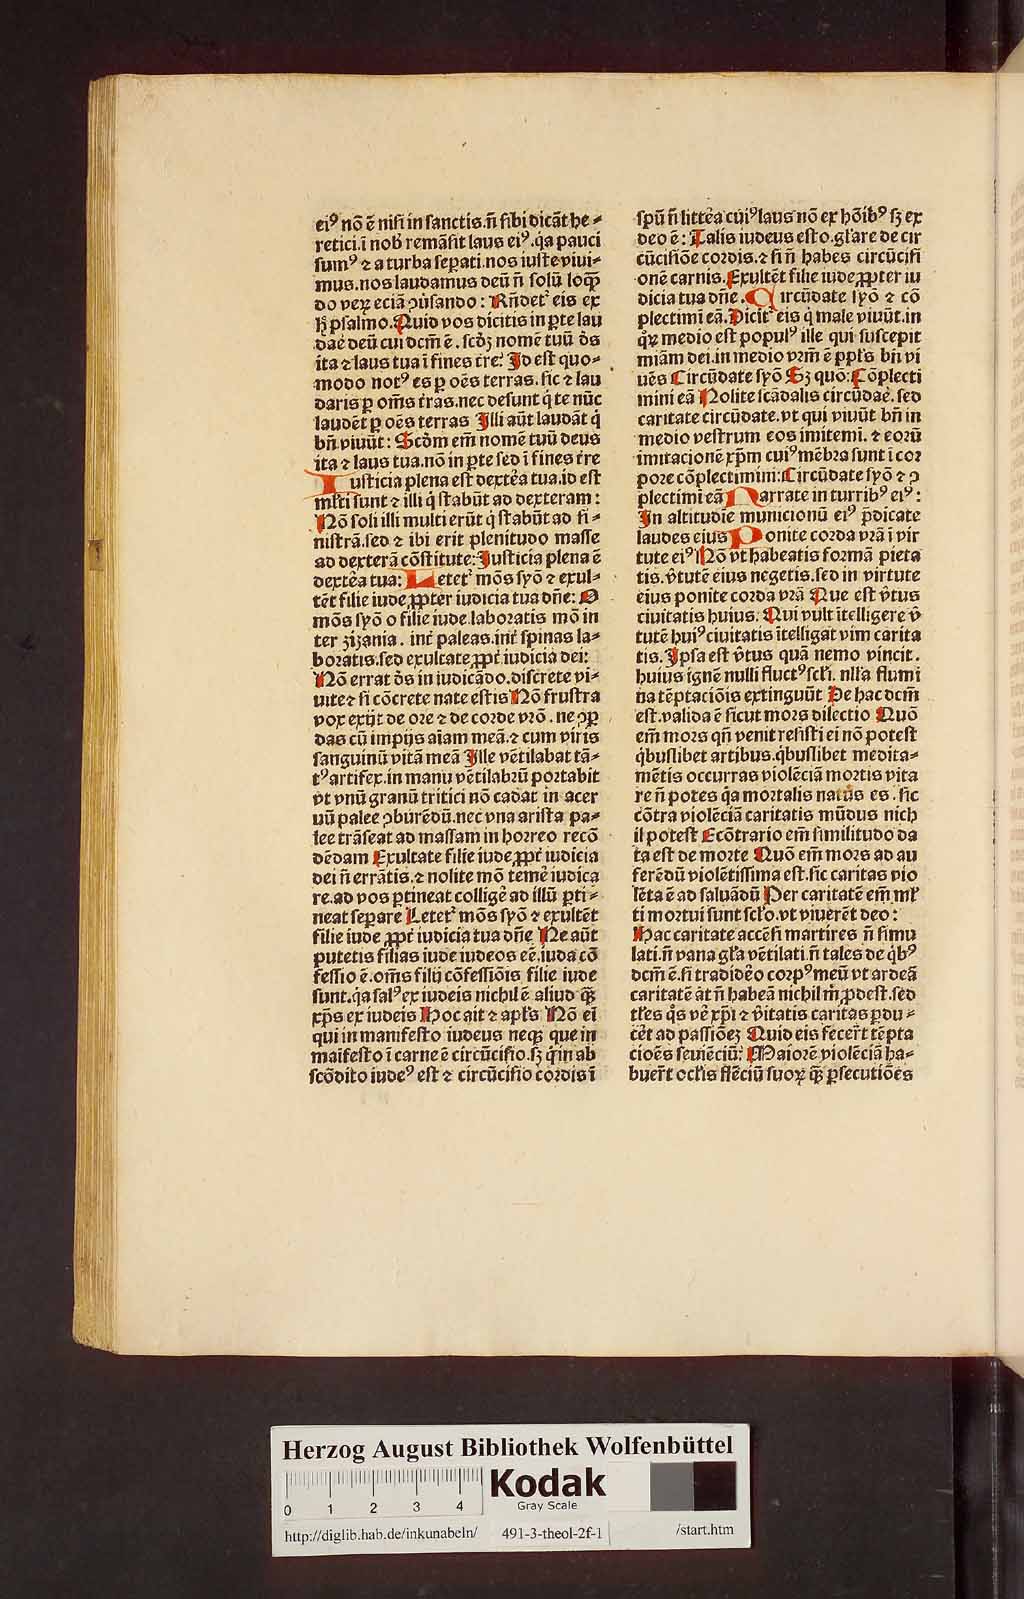 eiꝰ nō ē niſi in ſanctis.n̄ ſibi dicāt he⸗
retici.ī nob̄ remāſit laus eiꝰ.q̇a pauci
ſumꝰ ⁊ a turba ſeꝑati.nos iuſte viui⸗
mus.nos laudamus deū n̄ ſolū loq̄n
do veꝝ eciā ↄúſando: Rn̄det᷑ eis ex
h̄ pſalmo.Quid vos dicitis in ꝑte lau
dae᷑ deū cui dcm̄ ē.ſcdꝫ nomē tuū ds̄
ita ⁊ laus tua ī fines tr̄e: Id eſt quo⸗
modo notꝰ es ꝑ oēs terras.ſic ⁊ lau
daris ꝑ om̄s tr̄as.nec deſunt q̇ te nūc
laudēt ꝑ oēs terras Illi aūt laudāt q̇
bn̄ viuūt: Scd̄m em̄ nomē tuū deus
ita ⁊ laus tua.nō in ꝑte ſed ī fines tr̄e
Iuſticia plena eſt dexte᷑a tua.id eſt
ml̄ti ſunt ⁊ illi q̇ ſtabūt ad dexteram:
Nō ſoli illi multi erūt q̇ ſtabūt ad ſi⸗
niſtrā.ſed ⁊ ibi erit plenitudo maſſe
ad dexterā cōſtitute: Iuſticia plena ē
dexte᷑a tua: Letet᷑ mōs ſyō ⁊ exul⸗
tēt filie iude ꝓpter iudicia tua dn̄e: O
mōs ſyō o filie iude.laboratis mō in
ter zizania. int᷑ paleas.int᷑ ſpinas la⸗
boratis.ſed exultate ꝓpt᷑ iudicia dei:
Nō errat ds̄ in iudicādo.diſcrete vi⸗
uite ⁊ ſi cōcrete nate eſtis Nō fruſtra
vox exijt de ore ⁊ de corde vr̄o. ne ↄꝑ
das cū impijs aīam meā.⁊ cum viris
ſanguinū vitā meā Ille vētilabat tā⸗
tꝰ artifex.in manu vētilabrū portabit
vt vnū granū tritici nō cadat in acer
uū palee ↄburēdū.nec vna ariſta pa⸗
lee trāſeat ad maſſam in horreo recō
dēdam Exultate filie iude ꝓpt᷑ iudicia
dei n̄ errātis.⁊ nolite mō teme᷑ iudica
re.ad vos ꝑtineat collige᷑ ad illū ꝑti⸗
neat ſeꝑare Letet᷑ mōs ſyō ⁊ exultēt
filie iude ꝓpt᷑ iudicia tua dn̄e Ne aūt
putetis filias iude iudeos eē.iuda cō
feſſio ē.om̄s filij cōfeſſiōis filie iude
ſunt.q̇a ſalꝰ ex iudeis nichil ē aliud q̄ꝫ
xp̄s ex iudeis Hoc ait ⁊ apl̄s Nō eī
qui in manifeſto iudeus neqꝫ que in
maīfeſto ī carne ē circūciſio.ſꝫ q̇ in ab
ſcōdito iudeꝰ eſt ⁊ circūciſio cordis ī
ſpū n̄ litte᷑a cuiꝰ laus nō ex hōibꝰ ſꝫ ex
deo ē: Talis iudeus eſto.gl̄are de cir
cūciſiōe cordis.⁊ ſi n̄ habes circūciſi
onē carnis.Exultēt filie iude ꝓpter iu
dicia tua dn̄e. Circūdate ſyō ⁊ cō
plectimī eā.Dicit᷑ eis q̇ male viuūt.in
q̊ꝝ medio eſt populꝰ ille qui ſuſcepit
miām dei.in medio vr̄m ē ppl̄s bn̄ vi
uēs Circūdate ſyō Sꝫ quo: Cōplecti
mini eā Nolite ſcādalis circūdae᷑.ſed
caritate circūdate.vt qui viuūt bn̄ in
medio veſtrum eos imitemī.⁊ eorū
imitacionē xp̄m cuiꝰ mēbra ſunt ī cor
pore cōplectimini: Circūdate ſyō ⁊ ↄ
plectimī eā Narrate in turribꝰ eiꝰ:
In altitudīe municionū eiꝰ p̄dicate
laudes eius Ponite corda vr̄a ī vir
tute eiꝰ Nō vt habeatis formā pieta
tis.v̄tutē eius negetis.ſed in virtute
eius ponite corda vr̄a Que eſt v̄tus
ciuitatis huius. Qui vult ītelligere v̄
tutē huiꝰ ciuitatis ītelligat vim carita
tis.Ipſa eſt v̄tus quā nemo vincit.
huius ignē nulli fluctꝰ ſcl̄i. nll̄a flumi
na tēptaciōis extinguūt De hac dcm̄
eſt.valida ē ſicut mors dilectio Quō
em̄ mors qn̄ venit reſiſti ei nō poteſt
q̇buſlibet artibus.q̇buſlibet medita⸗
mētis occurras violēciā mortis vita
re n̄ potes q̇a mortalis natus es.ſic
cōtra violēciā caritatis mūdus nich
il poteſt Ecōtrario em̄ ſimilitudo da
ta eſt de morte Quō em̄ mors ad au
ferēdū violētiſſima eſt.ſic caritas vio
lēta ē ad ſaluādū Per caritatē em̄ ml̄
ti mortui ſunt ſcl̄o.vt viuerēt deo:
Hac caritate accēſi martires n̄ ſimu
lati.n̄ vana gl̄a vētilati.n̄ tales de q̇bꝰ
dcm̄ ē.ſi tradide᷑o corpꝰ meū vt ardeā
caritatē āt n̄ habeā nichil m̄ ꝓdeſt.ſed
tl̄es q̊s ve᷑ xp̄i ⁊ v̄itatis caritas ꝑdu⸗
ce᷑t ad paſſiōeꝫ Quid eis fecer̄t tēpta
cioēs ſeuiēciū: Maiorē violēciā ha⸗
buer̄t ocl̄is flēciū ſuoꝝ q̄ꝫ ꝑſecutiōes
Herzog August Bibliothek Wolfenbüttel
Kodak
Gray Scale
0 1 2 3 4
http://diglib.hab.de/inkunabeln/ 491-3-theol-2f-1 /start.htm